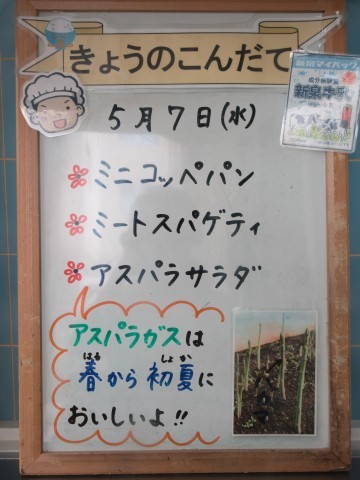 きょうのこんだて
5月7日(水)
ミニコッペパン
ミートスパゲティ
アスパラサラダ
アスパラガスは
春から初夏に
おいしいよ!!
はる
しょか